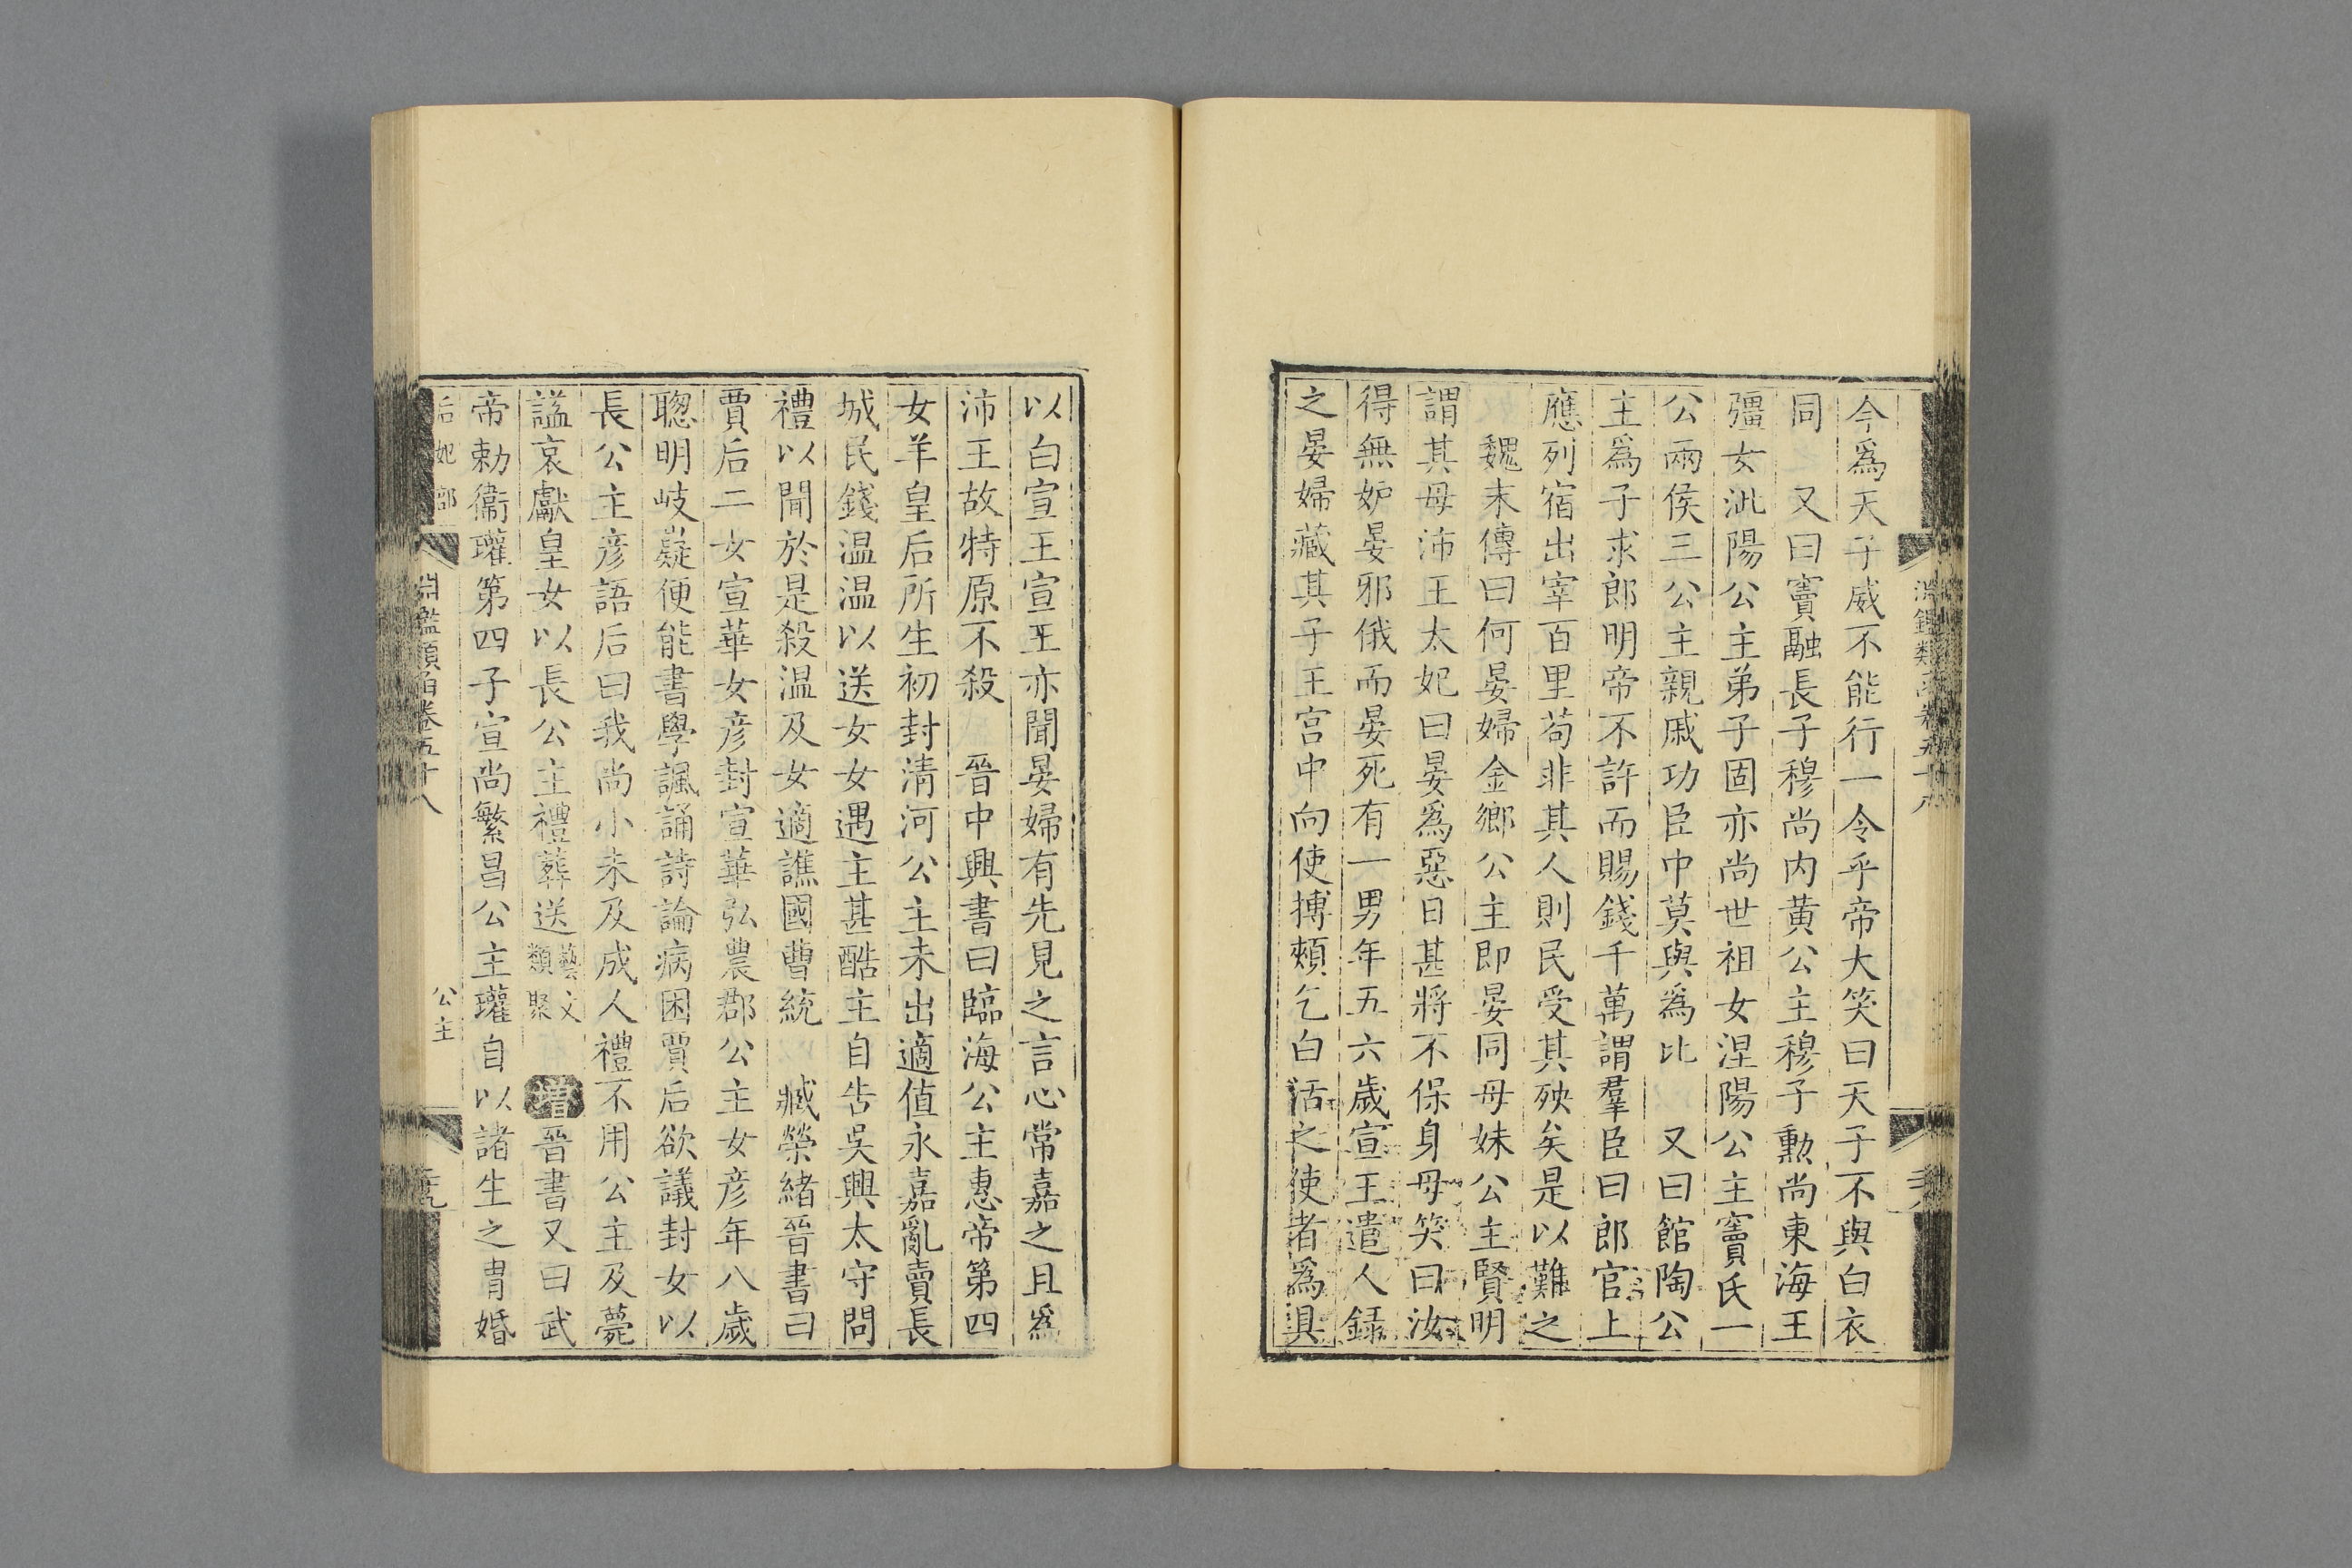 今爲天子威不能行一令乎帝大笑曰天子不與白衣
同　又曰竇融長子穆尚内黄公主穆子勲尚東海王
彊女沘陽公主弟子固亦尚世祖女涅陽公主竇氏一
公兩侯三公主親戚功臣中莫與爲比　又曰館陶公
主爲子求郎明帝不許而賜錢千萬謂羣臣曰郎官上
應列宿出宰百里苟非其人則民受其殃矣是以難之
魏末傳曰何晏婦金鄉公主即晏同母妹公主賢明
謂其母沛王太妃曰晏爲惡日甚將不保身母笑曰汝
得無妒晏邪俄而晏死有一男年五六歲宣王遣人錄
之晏婦藏其子王宫中向使搏頰乞白活之使者爲具
以白宣王宣王亦聞晏婦有先見之言心常嘉之且爲
沛王故特原不殺　晉中興書曰臨海公主惠帝第四
女羊皇后所生初封清河公主未出適值永嘉亂賣長
城民錢温温以送女女遇主甚酷主自告吳興太守問
禮以聞於是殺温及女適譙國曹統　臧榮緒晉書曰
賈后二女宣華女彦封宣華弘農郡公主女彦年八歲
聰明岐嶷便能書學諷誦詩論病困賈后欲議封女以
長公主彦語后曰我尚小未及成人禮不用公主及薨
諡哀獻皇女以長公主禮葬送藝文類聚　增晉書又曰武
帝勅衞瓘第四子宣尚繁昌公主瓘自以諸生之胄婚
后妃部　淵鑑類函卷五十八　公主　三九